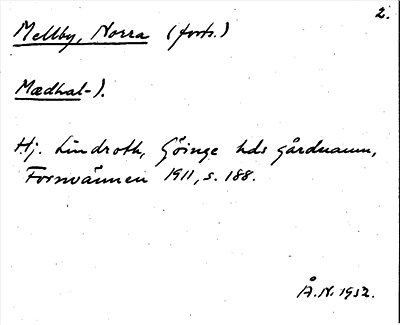 2.
Mellby, Norra (forts.)
Mædhal-).
Hj. Lindroth, Göinge hds gårdnamn,
Fornvännen 1911, s. 188.
Å.N. 1932.